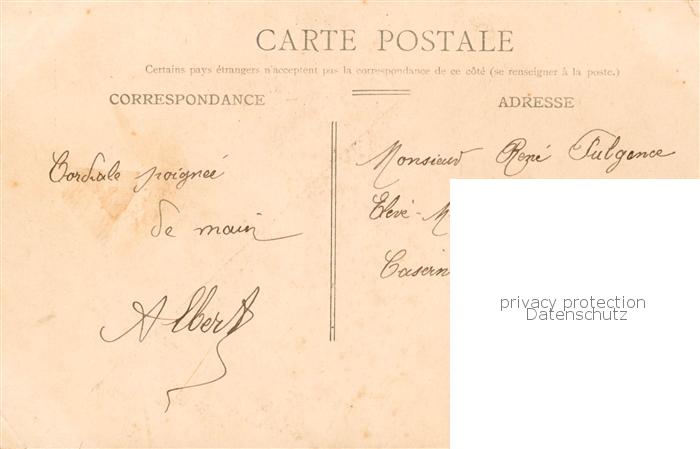 CARTE POSTALE
Certains pays étrangers n'acceptent pas la correspondance de ce côté (se renseigner à la poste.)
CORRESPONDANCE
ADRESSE
Cordiale poignée
de main
Albert
Monsieur René Fulgence
Elevé - M
Casern
privacy protection
Datenschutz